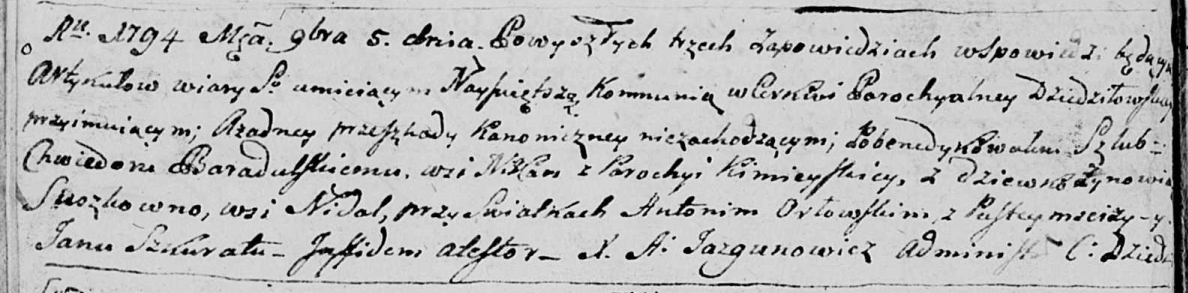 Ru. 1794 Mcą. 9bra 5. dnia. Powyszłych trzech Zapowiedziach wspowiedzi będącym
Artykułow wiary S° umieiącym Nayświętszą Kommunią w Cerkwi Parochyalney Dziedziłowskiey
przyimuiącym; Ażadney przeszkody Kanoniczney niezachodzącym; Pobenedykowałem Szlub-
Chwiedoru Baradulskiemu, wsi Nikan z Parochyi Kimieyskiey, z dziewko Zynowią
Suszkowno, wsi Nidal, przy Swiatkach Antonim Orłowskim, z Pustey mscizy- y.
Janu Szkuratu - Jassidem atestor - X. A: Jazgunowicz Administ C: Dzied